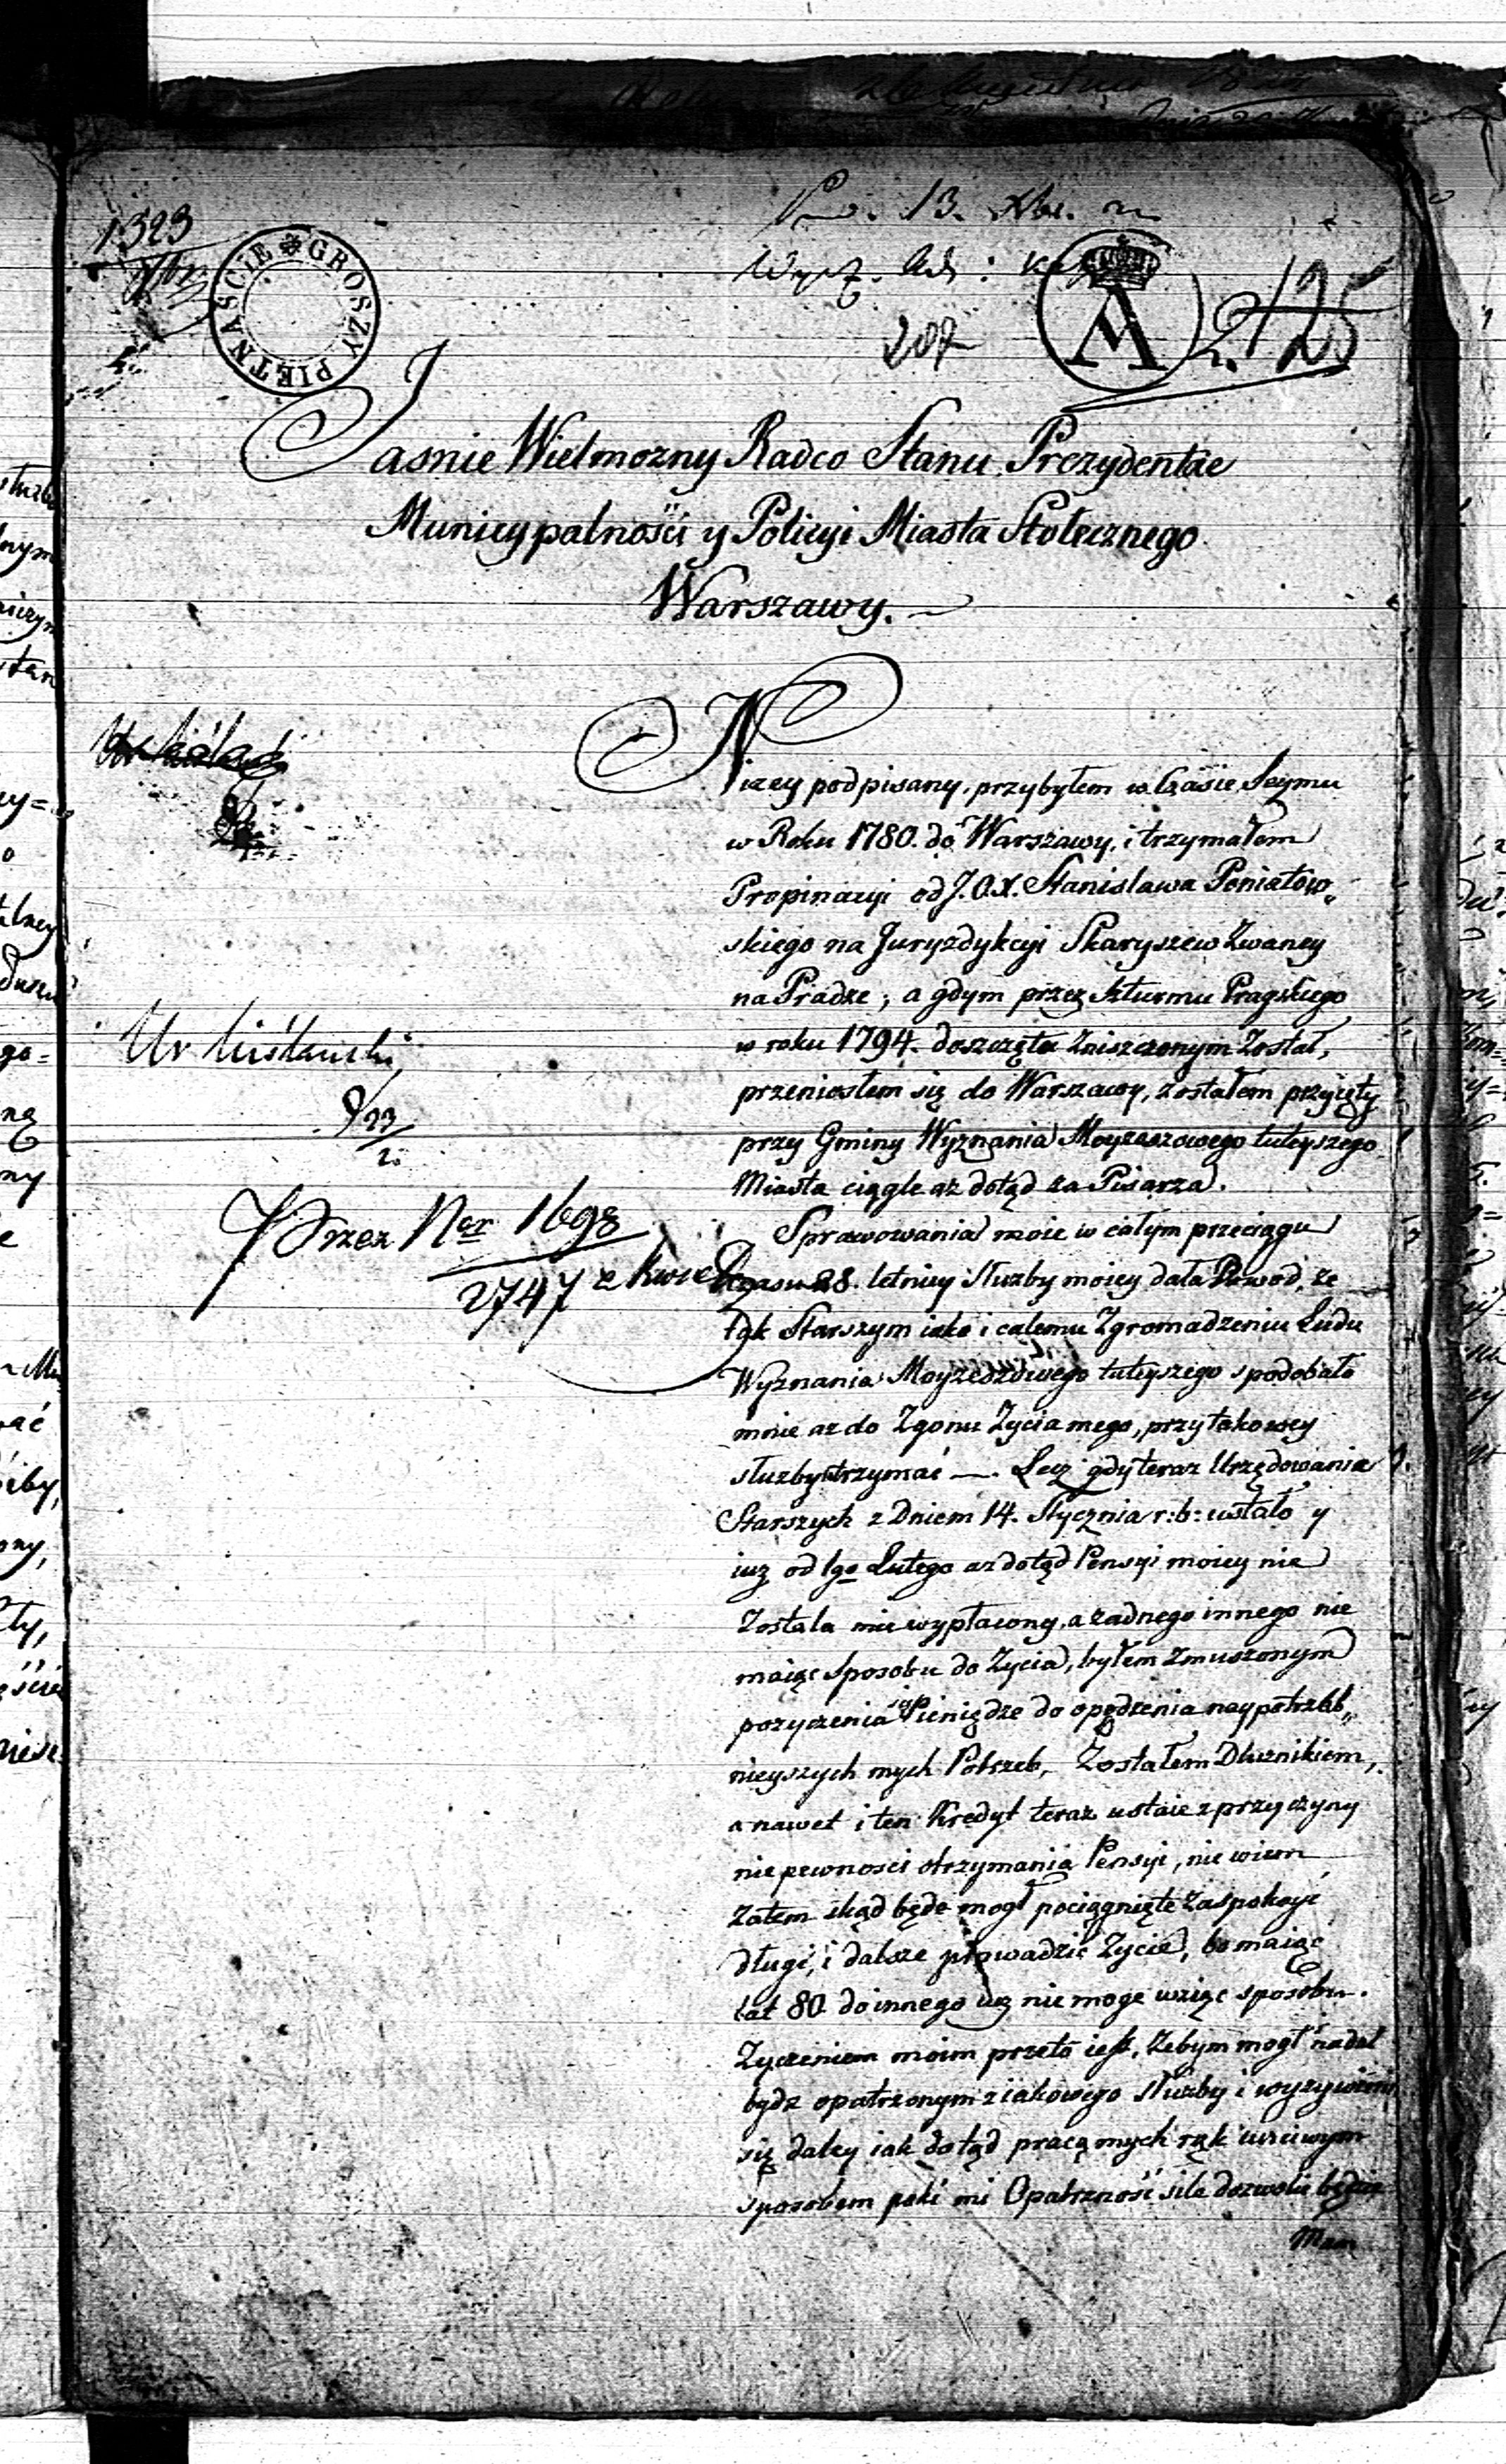 1323
GROSZY PIĘTNAŚCIE
13. Xbr.
207
125
Jasnie Wielmozny Radco Stanu Prezydentcie
Municypalności y Policyi Miasta Stołecznego
Warszawy.
Nizey podpisany, przybyłem w Czasie Seymu
w Roku 1780. do Warszawy, i trzymałem
Propinacyi od J.O.X. Stanislawa Poniatow„
skiego na Juryzdykcyi Skaryszew Zwaney
na Pradze; a gdym przez Szturmu Pragskiego
w roku 1794. doszczęta Zniszczonym Został,
przeniosłem się do Warszawy, zostałem przyięty
przy Gminy Wyznania Moyzeszowego tuteyszego
Miasta ciągle az dotąd za Pisarza.
Przez Ner 1698
2747 z Kwie
Sprawowania moie w całym przeciągu
Czasu 28. letniey słuzby moiey dała Powod, że
tak Starszym iako i całemu Zgromadzeniu Ludu
Wyznania Moyzeszowego tuteyszego spodobało
mnie az do Zgonu Zycia mego, przy takowey
służby utrzymać —. Lecz gdy teraz Urzędowania
Starszych z Dniem 14. Stycznia r: b: ustało y
iuż od 1go Lutego az dotąd Pensyi moiey nie
Zostala mie wypłacony, a zadnego innego nie
maiąc Sposobu do Zycia, byłem Zmuszonym
pozyczenia się Pieniędze do opędzenia naypotrzeb„
nieyszych mych Potrzeb, Zostałem Dłuznikiem,
a nawet i ten Kredyt teraz ustaie z przyczyny
niepewnosci otrzymania Pensyi, nie wiem
Zatem skąd będe mogł pociągnięte zaspokoyć
długi, i dalsze prowadzić Zycie, bo maiąc
lat 80 do innego iuz nie moge wziąc sposobu.
Zyczeniem moim przeto iest, Zebym mogł nadal
bydz opatrzonym z iakowego słuzby i wyzywienie
się daley iak dotąd pracą mych rąk uczciwym
sposobem poki mi Opatrzność sile dozwolić będzie
Mam